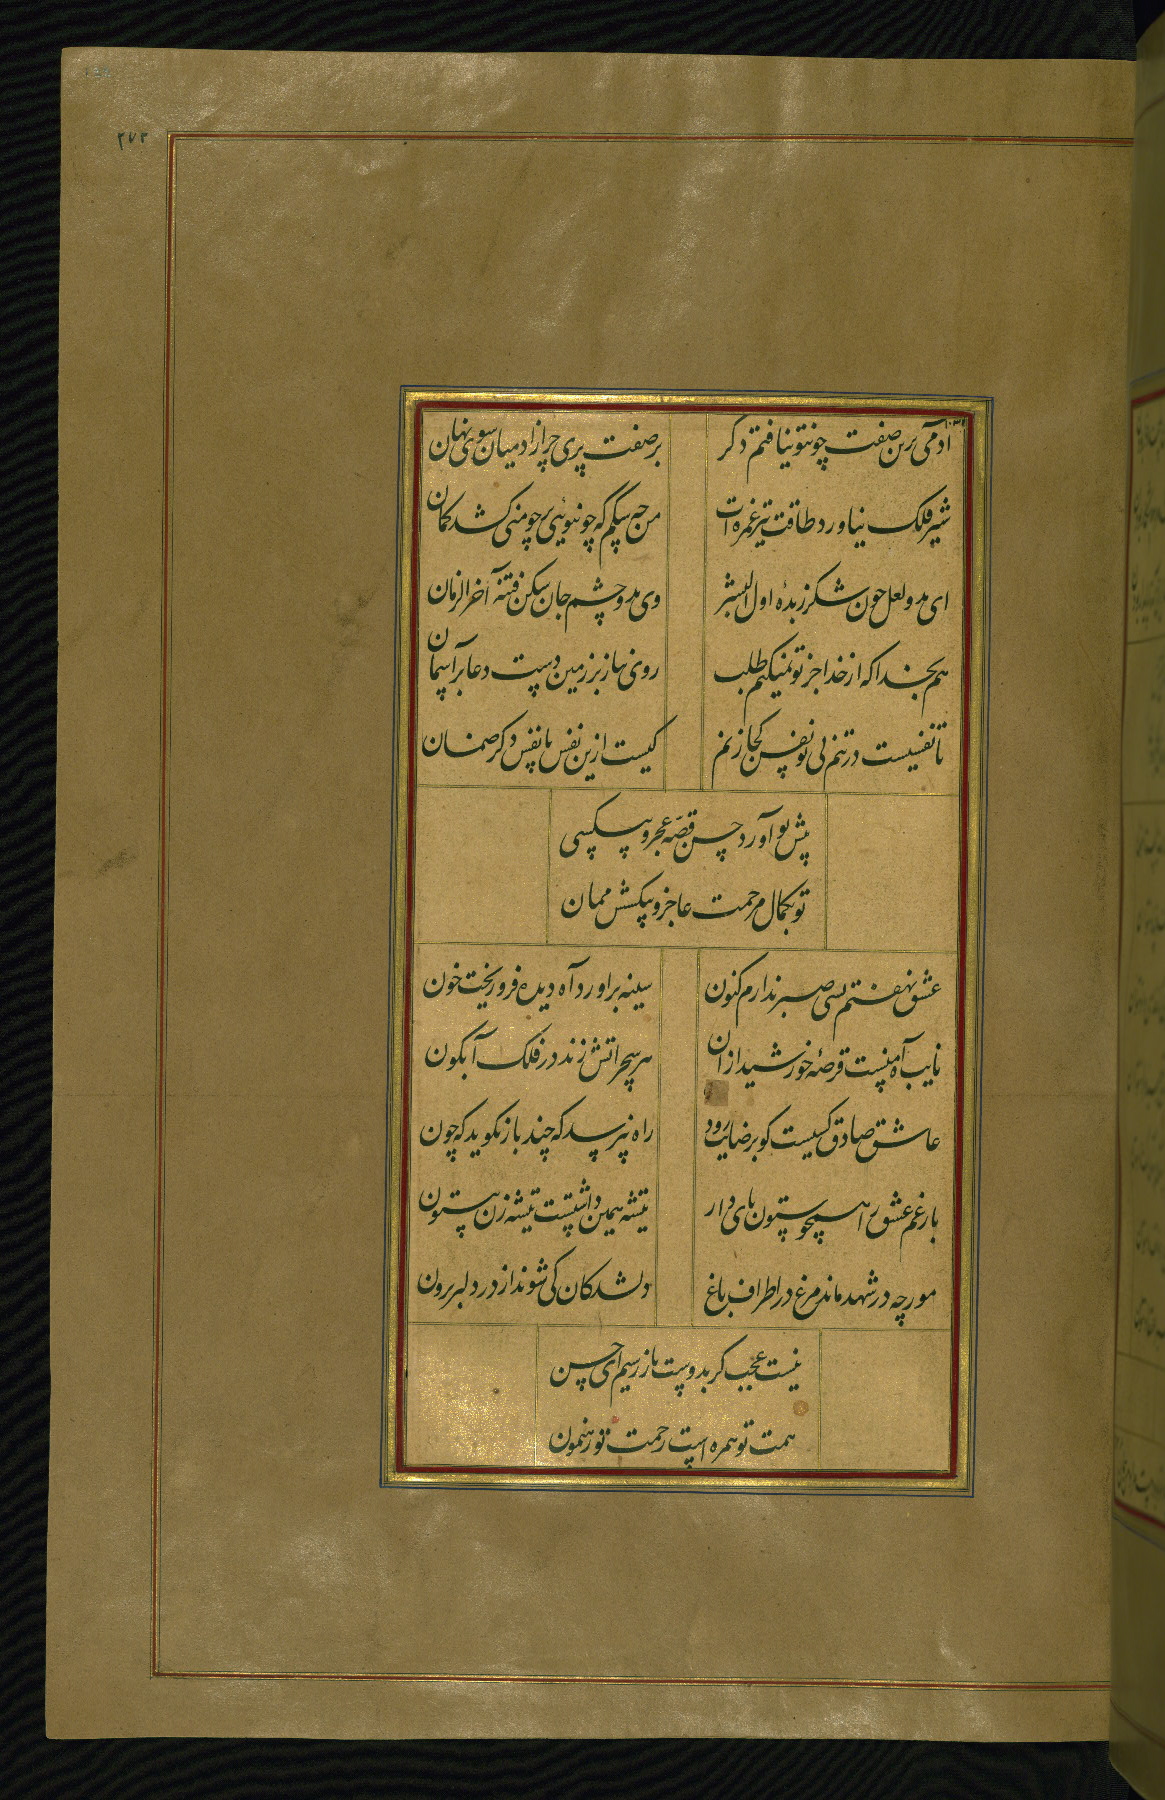 ۲۷۲
آدمی زین صفت چونتو نیافتم دگر
بر صفت پری چرا ز ادمیان شوی نهان
شیر فلک نیاورد طاقت تیر غمزه ات
من چه سگم که چونتوئی بر چو منی کشد کمان
ای مه و لعل چون شکر زبده اول البشر
وی مه و چشم جان شکن فتنه آخر الزمان
هم بخدا که از خدا جز تو نمیکنم طلب
روی نیاز بر زمین دست دعا بر آسمان
تا نفسیست در تنم بی تو نفس کجا زنم
کیست ازین نفس تا نفس دگر ضمان
پیش تو آورد حسن قصه عجز و بیکسی
تو بکمال مرحمت عاجز و بیکسش ممان
عشق نهفتم بسی صبر ندارم کنون
سینه براورد آه دیده فرو ریخت خون
نایب آه منست قرصه خورشید ازان
هر سحر اتش زند در فلک آبگون
عاشق صادق کیست کو برضایت رود
راه نپرسد که چند باز نگوید که چون
بار غم عشق را همچو ستون پای دار
تیشه همین داشتست تیشه زن بیستون
مورچه در شهد ماند مرغ در اطراف باغ
دلشدگان کی شوند از در دلبر برون
نیست عجب گر بدوست باز رسیم ای حسن
همت تو همره است رحمت تو رهنمون